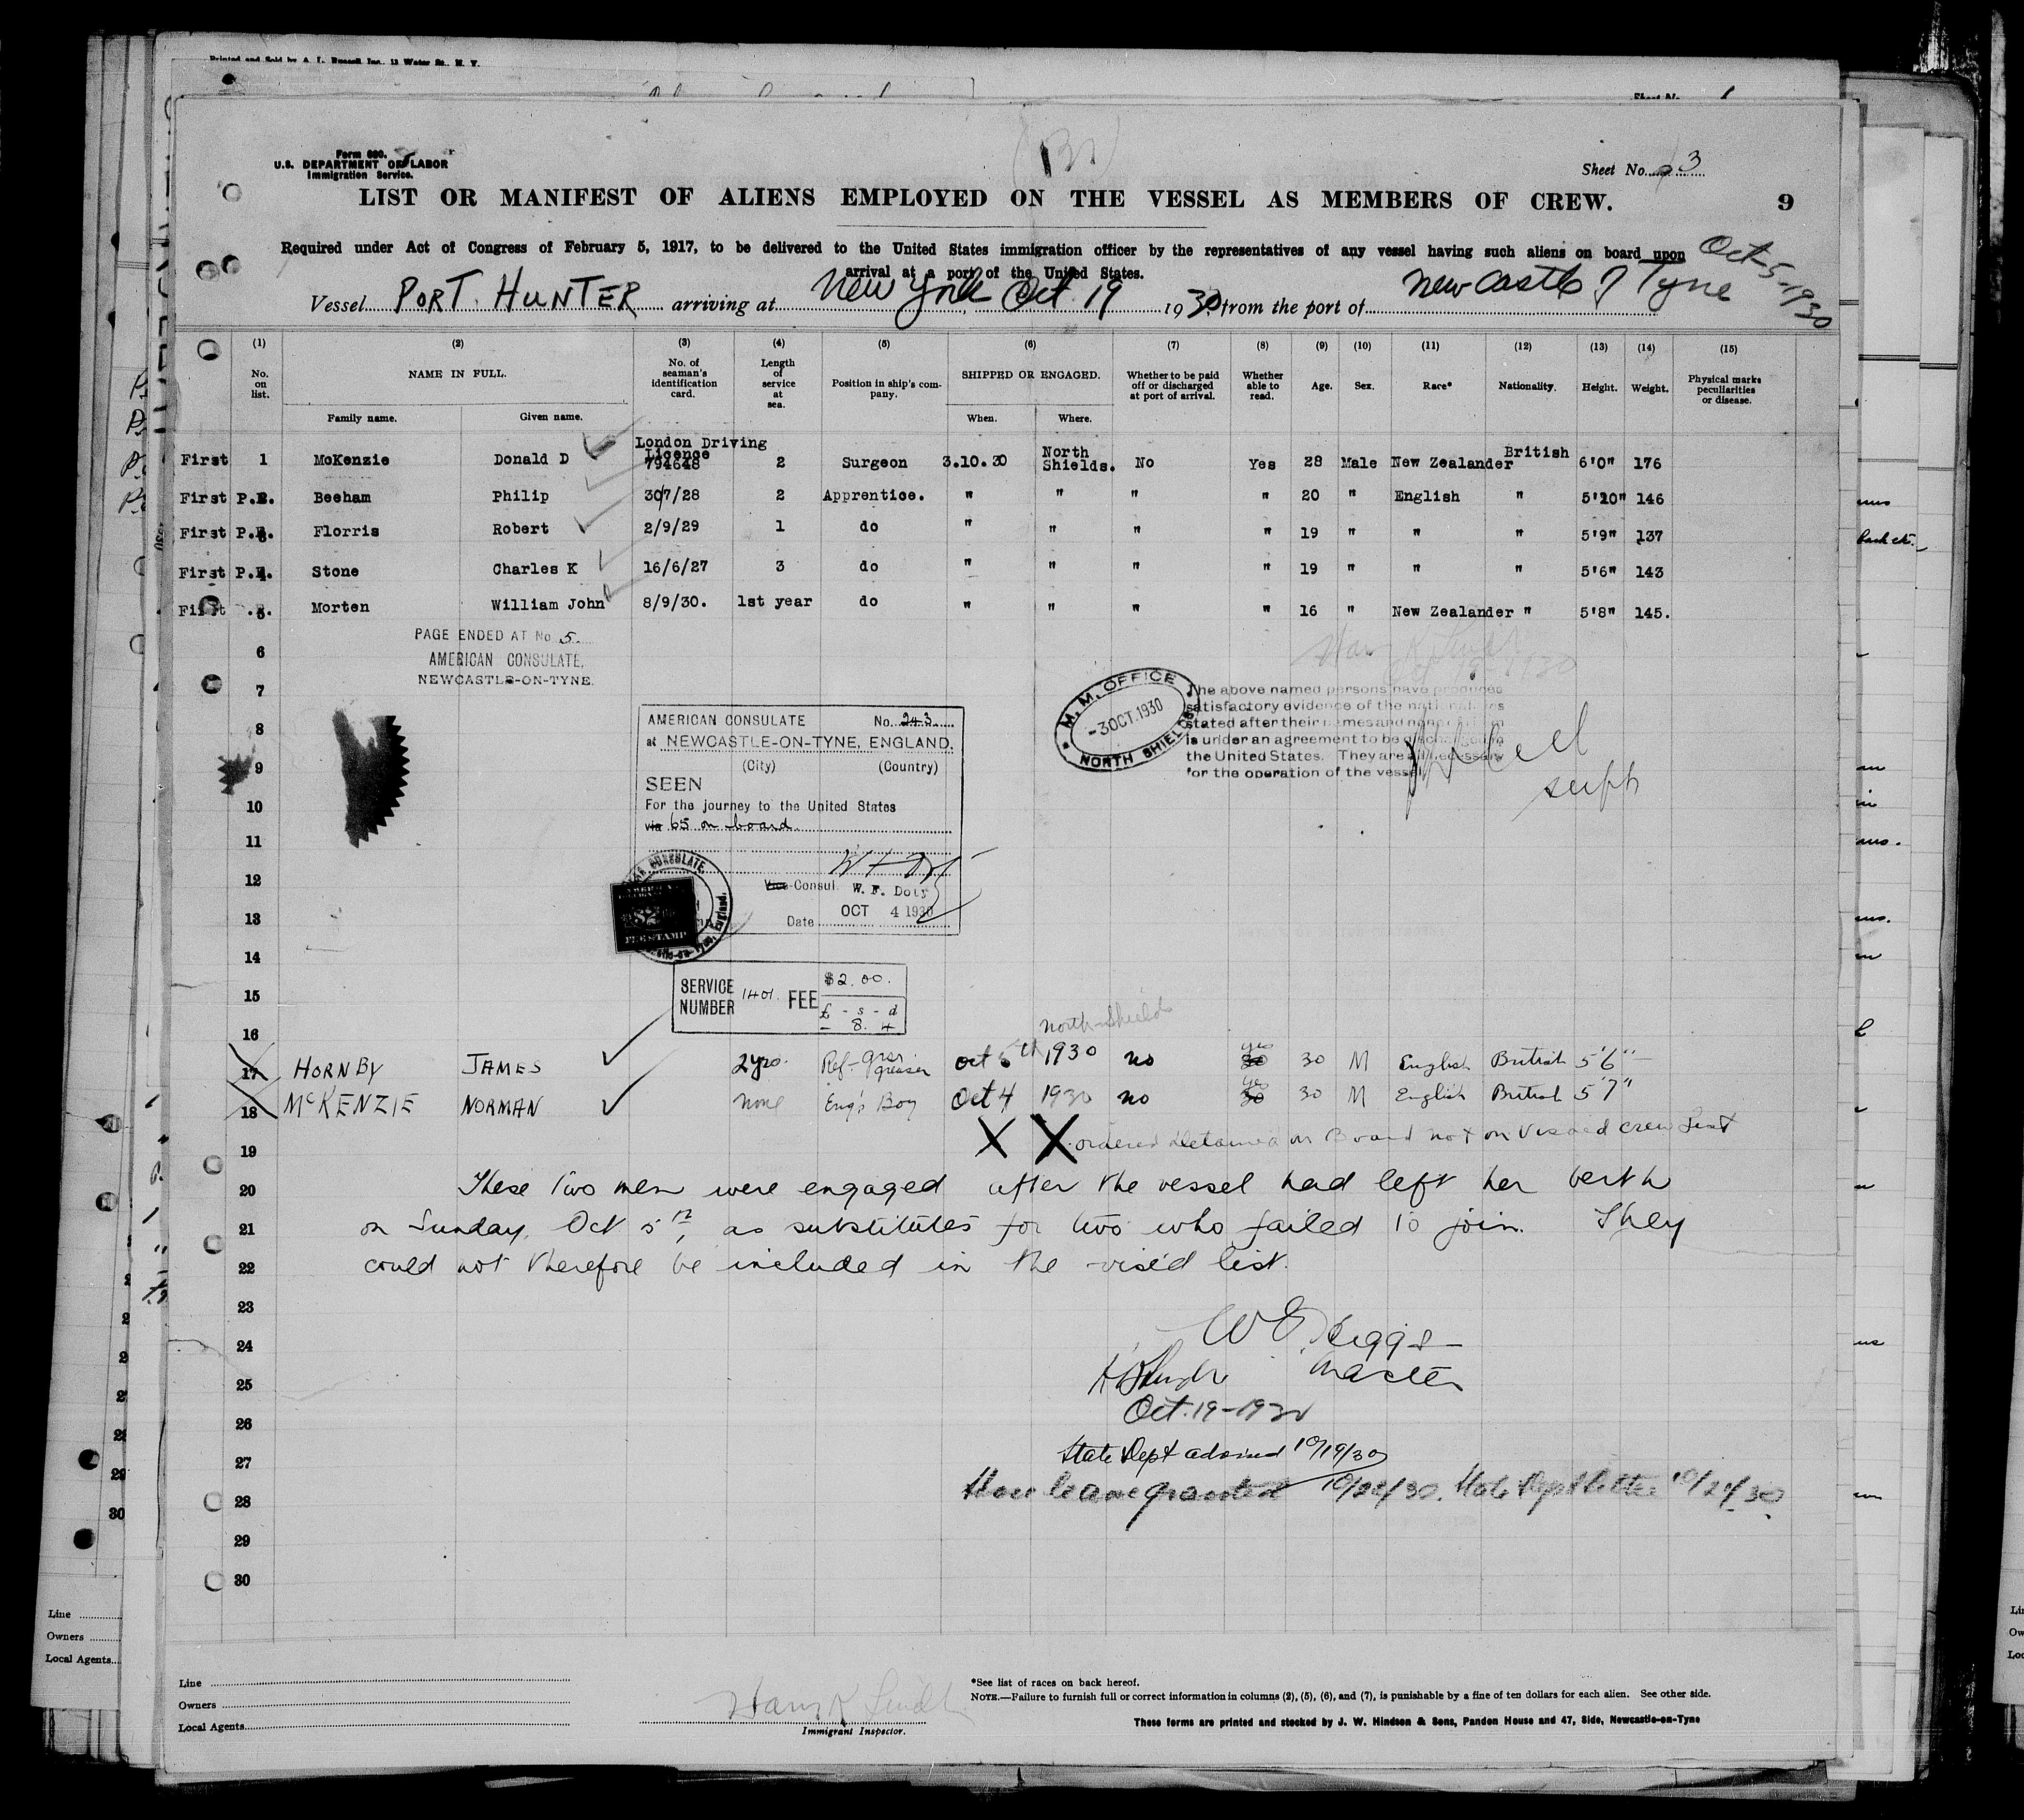 Printed and Sold by A. L. Russell Inc., 13 Water St., N. Y.
Sheet No.
Form 680.
U.S. DEPARTMENT OF LABOR
Immigration Service.
Sheet No. 3
LIST OR MANIFEST OF ALIENS EMPLOYED ON THE VESSEL AS MEMBERS OF CREW.
9
Required under Act of Congress of February 5, 1917, to be delivered to the United States immigration officer by the representatives of any vessel having such aliens on board upon
arrival at a port of the United States.
Oct-5-1930
Vessel PORT HUNTER arriving at New York Oct 19 1930, from the port of Newcastle Tyne
(1) (2) (3) (4) (5) (6) (7) (8) (9) (10) (11) (12) (13) (14) (15)
No. on list. NAME IN FULL. Family name. Given name. No. of seaman's identification card. Length of service at sea. Position in ship's company. SHIPPED OR ENGAGED. When. Where. Whether to be paid off or discharged at port of arrival. Whether able to read. Age. Sex. Race* Nationality. Height. Weight. Physical marks peculiarities or disease.
First 1 McKenzie Donald D London Driving Licence 794648 2 Surgeon 3.10.30 North Shields. No Yes 28 Male New Zealander British 6'0" 176
First P.E. Beeham Philip 307/28 2 Apprentice. " " " " 20 " English " 5'10" 146
First P.E. Florris Robert 2/9/29 1 do " " " " 19 " " " 5'9" 137
First P.E. Stone Charles K 16/6/27 3 do " " " " 19 " " " 5'6" 143
First 5. Morten William John 8/9/30. 1st year do " " " " 16 " New Zealander " 5'8" 145.
PAGE ENDED AT No 5.
AMERICAN CONSULATE,
NEWCASTLE-ON-TYNE.
6
7
8
9
10
11
12
13
14
15
16
M. M. OFFICE
-3 OCT. 1930
NORTH SHIELDS
Oct 19-1930
The above named persons have produced
satisfactory evidence of the nationalities
stated after their names and none of them
is under an agreement to be discharged in
the United States. They are all necessary
for the operation of the vessel
supt
AMERICAN CONSULATE No. 243
at NEWCASTLE-ON-TYNE, ENGLAND.
(City) (Country)
SEEN
For the journey to the United States
via 65 on board.
Vice Consul. W. F. Doty
Date OCT 4 1930
FEE STAMP
SERVICE NUMBER 1401. FEE $2.00.
£ - s - d
- 8. 4
North-Shields
17 HORNBY JAMES 2 yrs. Ref- greaser Oct 5th 1930 no yes 30 M English British 5'6"
18 McKENZIE NORMAN none Eng's Boy Oct 4 1930 no yes 30 M English British 5'7"
19 X X ordered detained on Board not on Visaed crew List
20 These two men were engaged after the vessel had left her berth
21 on Sunday, Oct 5th, as substitutes for two who failed to join. They
22 could not therefore be included in the vise'd list.
23
24
25 Master
26 Oct. 19-1930
27 State Dept advised 10/19/30
28 Shore leave granted 10/24/30. State Dept letter 10/24/30
29
30
Line
Owners
Local Agents
Immigrant Inspector.
*See list of races on back hereof.
NOTE.—Failure to furnish full or correct information in columns (2), (5), (6), and (7), is punishable by a fine of ten dollars for each alien. See other side.
These forms are printed and stocked by J. W. Hindson & Sons, Pandon House and 47, Side, Newcastle-on-Tyne
Line
Owners
Local Agents